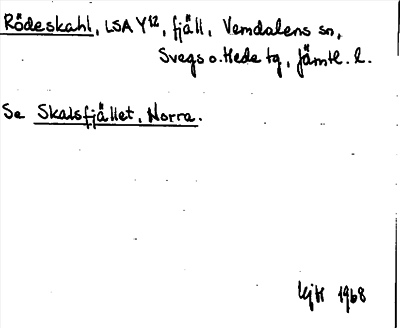 Rödeskahl, LSA Y12, fjäll, Vemdalens sn,
Svegs o. Hede tg, Jämtl. l.
Se Skalsfjället, Norra.
1968